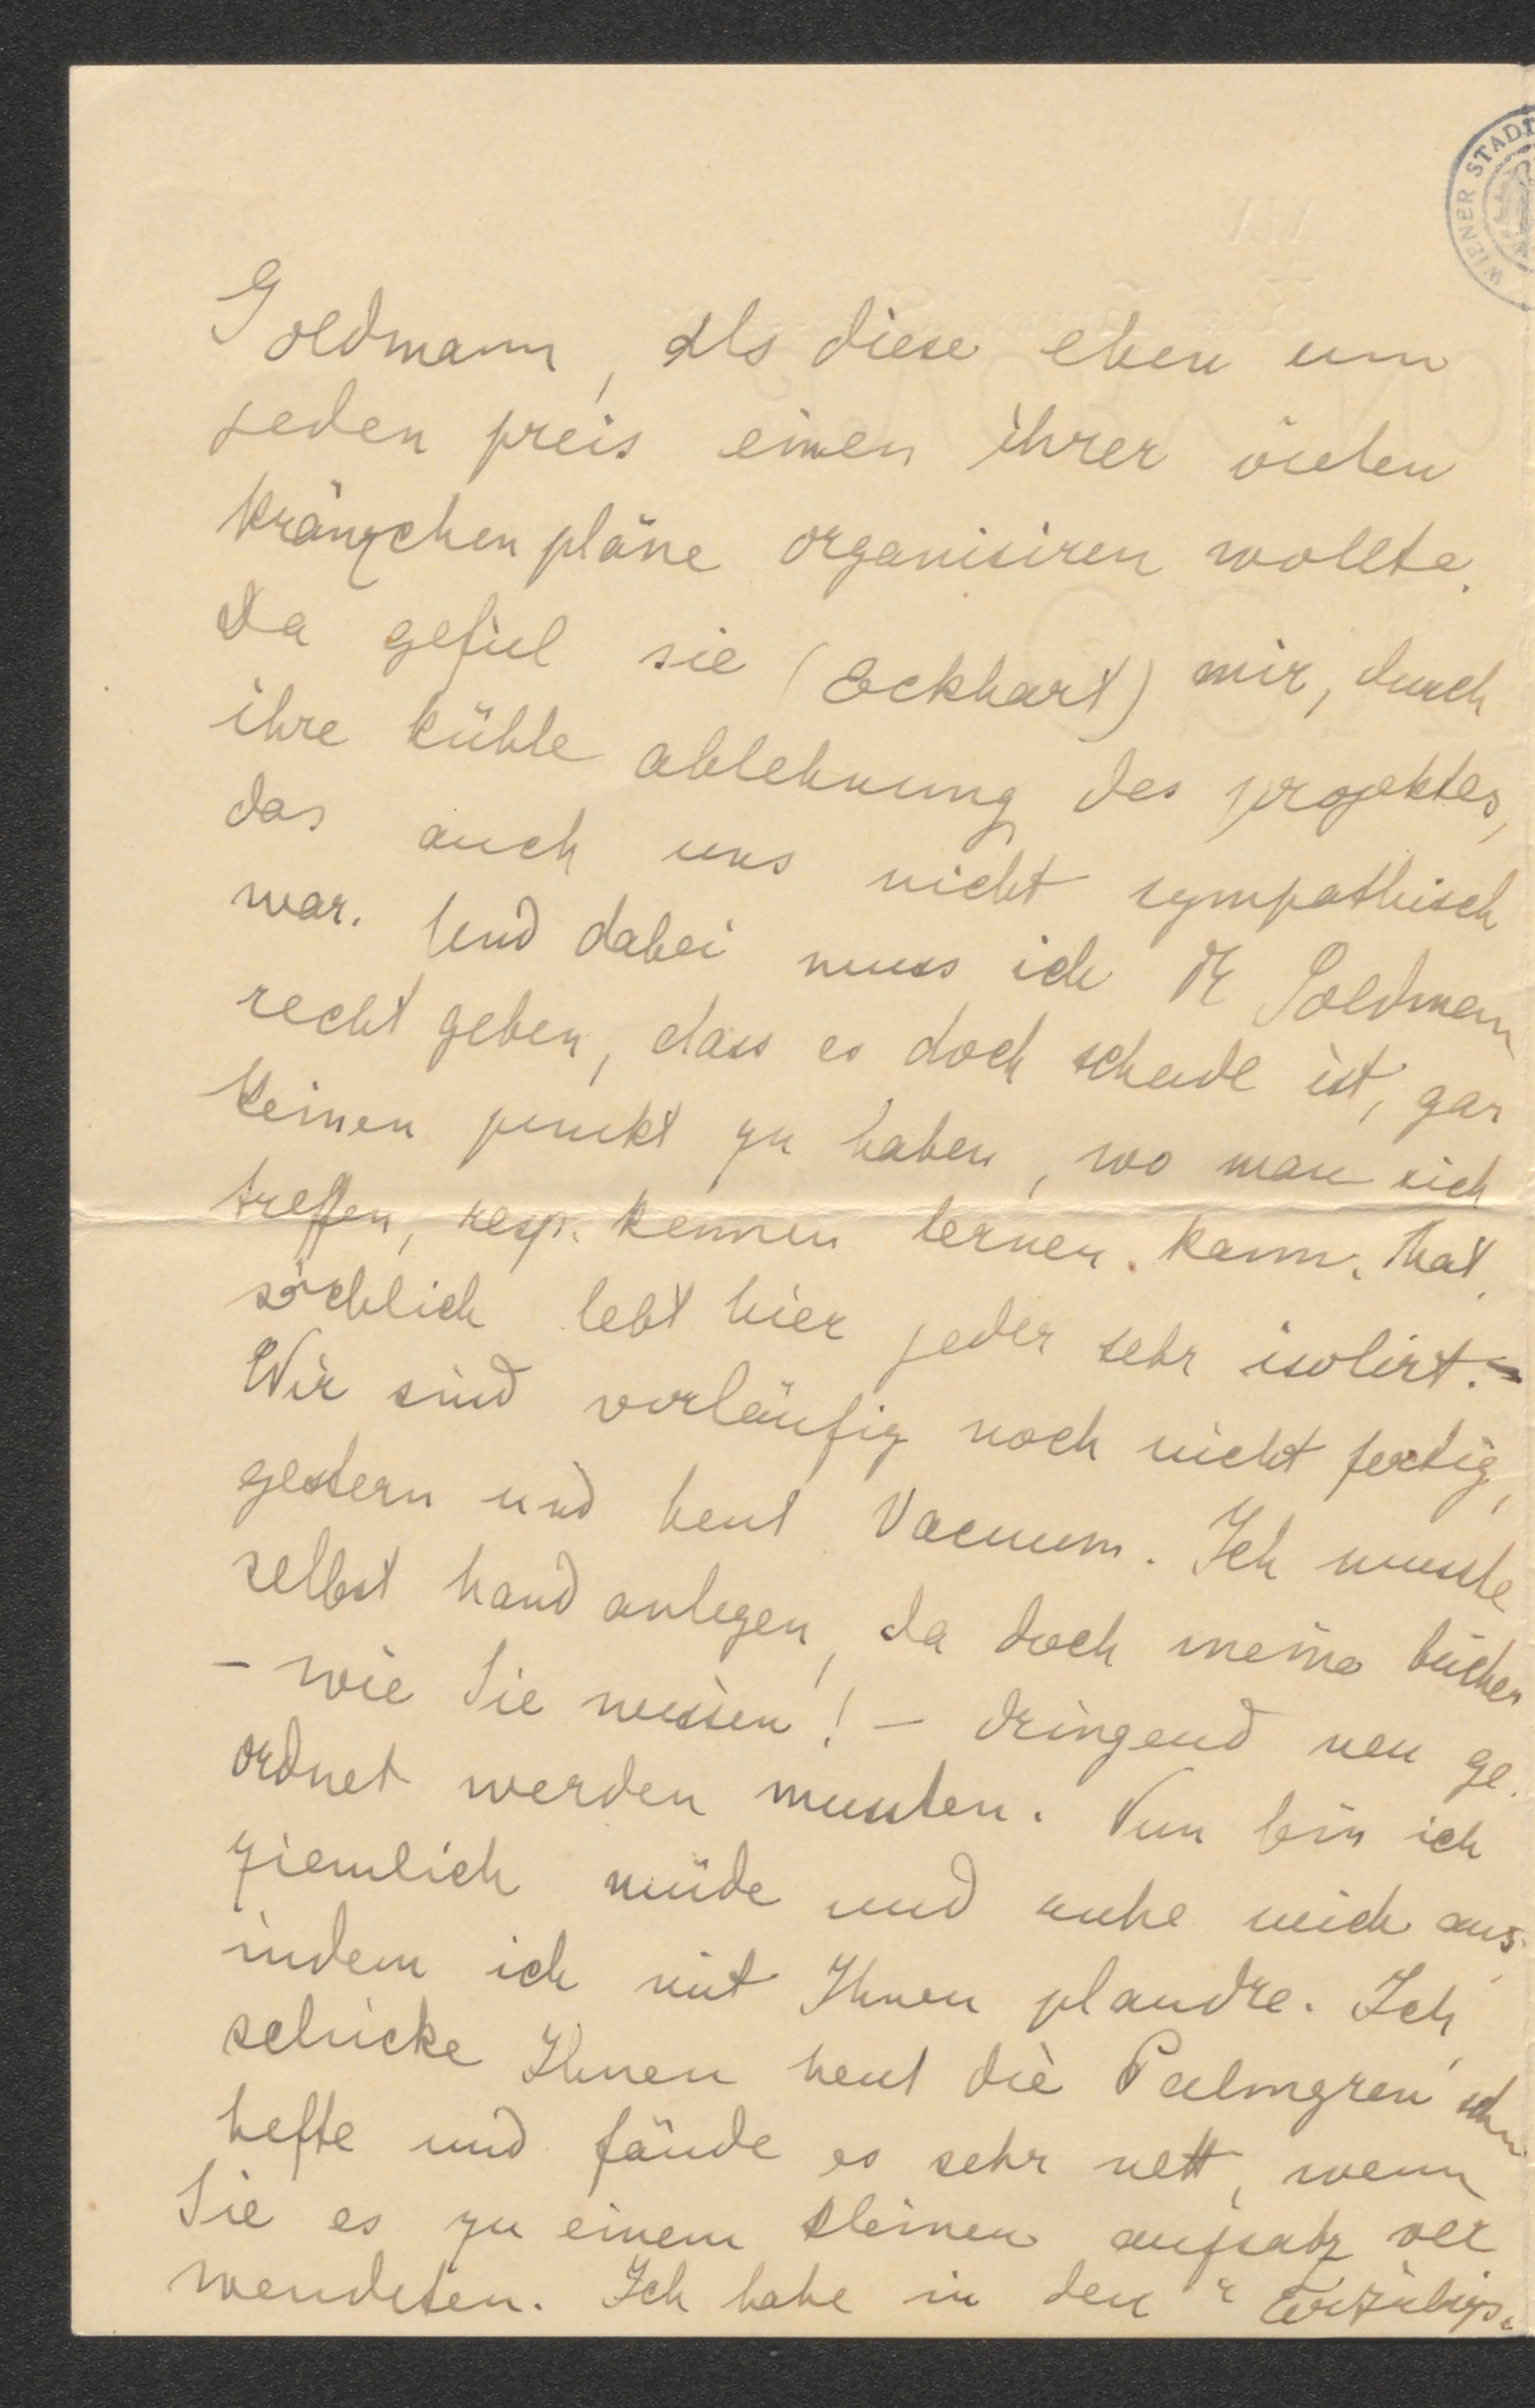 WIENER STADT
Goldmann, als diese eben um
jeden preis einen ihrer vielen
kränzchenpläne organisiren wollte.
Da gefiel sie (Eckhart) mir, durch
ihre kühle ablehnung des projektes,
das auch uns nicht sympathisch
war. Und dabei muss ich Dr Goldmann
recht geben, dass es doch schade ist, gar
keinen punkt zu haben, wo man sich
treffen, resp. kennen lernen kann. That
sächlich lebt hier jeder sehr isolirt. -
Wir sind vorläufig noch nicht fertig,
gestern und heut Vacuum. Ich musste
selbst hand anlegen, da doch meine bücher
- wie Sie wissen! - dringend neu ge
ordnet werden mussten. Nun bin ich
ziemlich müde und ruhe mich aus,
indem ich mit Ihnen plaudre. Ich
schicke Ihnen heut die Palmgren
hefte und fände es sehr nett, wenn
Sie es zu einem kleinen aufsatz ver
wendeten. Ich habe in den "